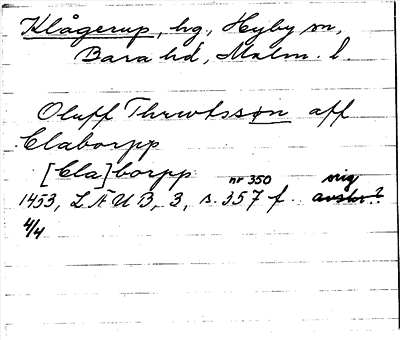 Klågerup, hg., Hyby sn,
Bara hd, Malm. l.
Oluff Thrwtssøn aff
Claborpp
[Cla]borpp
nr 350 orig
1453, LÄUB, 3, s. 357 f. avskr?
4/4